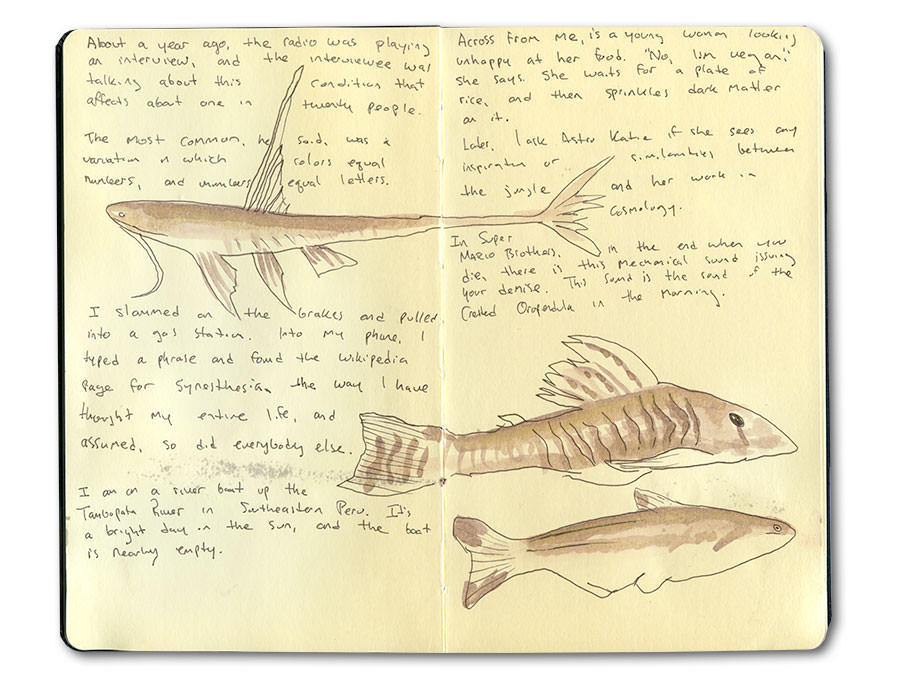 About a year ago, the radio was playing
an interview, and the interviewee was
talking about this condition that
affects about one in twenty people.
The most common, he said, was a
variation in which colors equal
numbers, and numbers equal letters.
I slammed on the brakes and pulled
into a gas station. Into my phone, I
typed a phrase and found the wikipedia
page for Synesthesia, the way I have
thought my entire life, and
assumed, so did everybody else.
I am on a river boat up the
Tambopata River in Southeastern Peru. It's
a bright day in the sun, and the boat
is nearly empty.
Across from me, is a young woman looking
unhappy at her food. "No, I'm vegan,"
she says. She waits for a plate of
rice, and then sprinkles dark matter
on it.
Later, I ask Astro Katie if she sees any
inspiration or similarities between
the jungle and her work in
cosmology.
In Super
Mario Brothers, in the end when you
die, there is this mechanical sound issuing
your demise. This sound is the sound of the
Crested Oropendula in the morning.